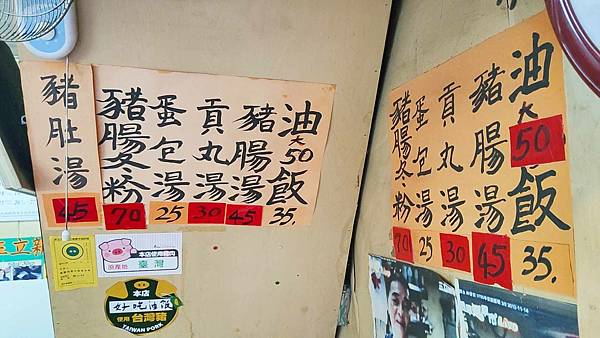 油飯 大50 35.
豬腸湯 45
貢丸湯 30
蛋包湯 25
豬腸冬粉 70
豬肚湯 45
油飯 大50 35.
豬腸湯 45
貢丸湯 30
蛋包湯 25
豬腸冬粉 70
本店使用豬肉
原產地 臺灣
本店
好吃油飯
使用台灣豬
TAIWAN PORK